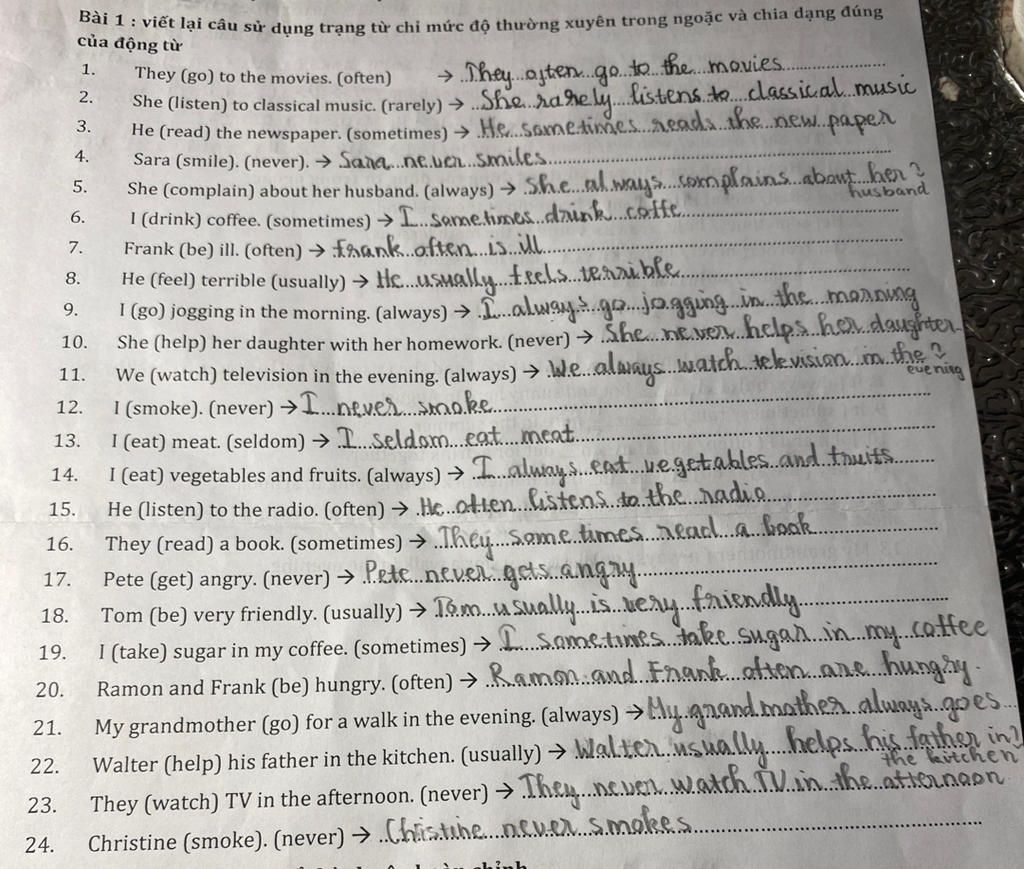 Bài 1 : viết lại câu sử dụng trạng từ chỉ mức độ thường xuyên trong ngoặc và chia dạng đúng
của động từ
1. They (go) to the movies. (often) → They often go to the movies
2. She (listen) to classical music. (rarely) → She rarely listens to classical music
3. He (read) the newspaper. (sometimes) → He sometimes reads the new paper
4. Sara (smile). (never). → Sara never smiles
5. She (complain) about her husband. (always) → She always complains about her
husband
6. I (drink) coffee. (sometimes) → I sometimes drink coffe
7. Frank (be) ill. (often) → Frank often is ill
8. He (feel) terrible (usually) → He usually feels terrible
9. I (go) jogging in the morning. (always) → I always go jogging in the morning
10. She (help) her daughter with her homework. (never) → She never helps her daughter
11. We (watch) television in the evening. (always) → We always watch television in the
evening
12. I (smoke). (never) → I never smoke
13. I (eat) meat. (seldom) → I seldom eat meat
14. I (eat) vegetables and fruits. (always) → I always eat vegetables and fruits
15. He (listen) to the radio. (often) → He often listens to the radio
16. They (read) a book. (sometimes) → They sometimes read a book
17. Pete (get) angry. (never) → Pete never gets angry
18. Tom (be) very friendly. (usually) → Tom usually is very friendly
19. I (take) sugar in my coffee. (sometimes) → I sometimes take sugar in my coffee
20. Ramon and Frank (be) hungry. (often) → Ramon and Frank often are hungry.
21. My grandmother (go) for a walk in the evening. (always) → My grandmother always goes
22. Walter (help) his father in the kitchen. (usually) → Walter usually helps his father in
the kitchen
23. They (watch) TV in the afternoon. (never) → They never watch TV in the afternoon
24. Christine (smoke). (never) → Christine never smokes